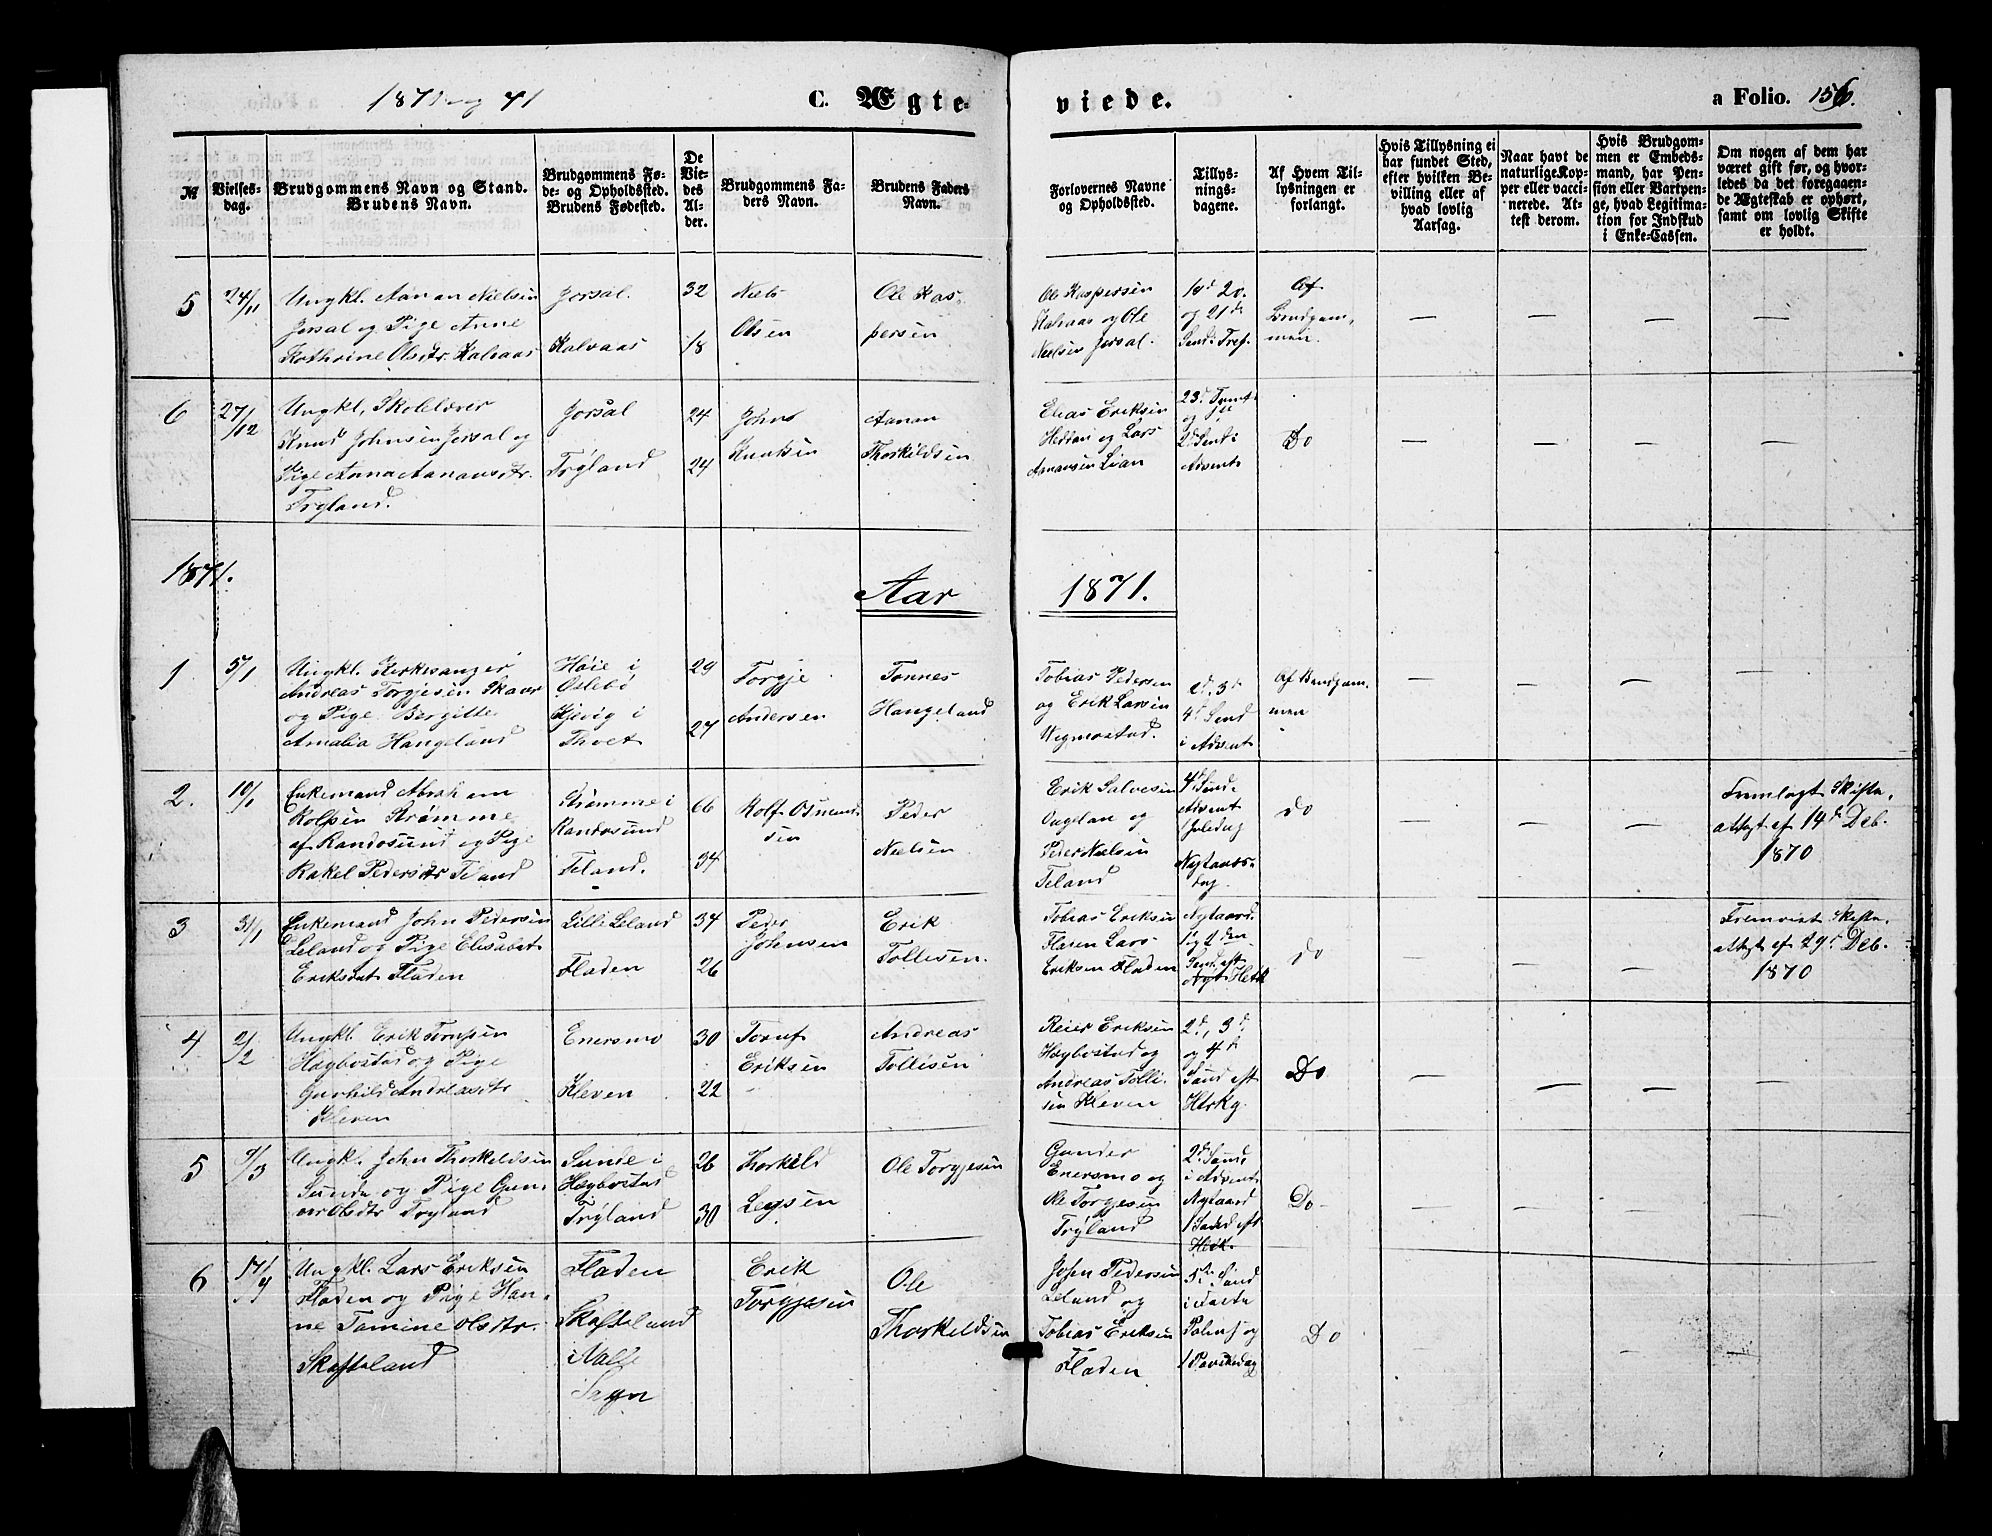 C. Ægte-
viede.
a Folio. 156.
№
Vielses-
dag.
Brudgommens Navn og Stand.
Brudens Navn.
Brudgommens Fø-
de- og Opholdssted.
Brudens Fødested.
De
Vie-
des
Al-
der.
Brudgommens Fa-
ders Navn.
Brudens Faders
Navn.
Forlovernes Navne
og Opholdssted.
Tillys-
nings-
dagene.
Af Hvem Til-
lysningen er
forlangt.
Hvis Tillysning ei
har fundet Sted,
efter hvilken Be-
villing eller af
hvad lovlig
Aarsag.
Naar havt de
naturlige Kop-
per eller vacci-
nerede. At-
test derom.
Hvis Brudgom-
men er Embeds-
mand, har Pen-
sion eller Vartpen-
ge, hvad Legitima-
tion for Indskud
i Enke-Cassen.
Om nogen af dem har
været gift før, og hvor-
ledes da det foregaaen-
de Ægteskab er ophørt,
samt om lovlig Skifte
er holdt.
5
24/11
Ungkl. Aanan Nielsen
Jorsal og Pige Anne
Kathrine Olsdtr. Kalvaas
Jorsal.
Kalvaas
32
18
Niels
Olsen
Ole Kas-
persen
Ole Kaspersen
Kalvaas og Ole
Nielsen Jorsal.
19d 20.
og 21de
Send. Tref.
Af
Brudgom-
men.
6
27/12
Ungkl. Skolelærer
Knud Johnsen Jorsal og
Pige Anna Aanansdtr.
Tryland.
Jorsal
Trÿland
24
24
John
Knutsen
Aanan
Thorkildsen
Elias Eriksen
Heddan og Lars
Aanansen Lian
23d
og
2d Send i
Advent
Do
1871.
Aar
1871.
1
5/1
Ungkl. Kirkesanger
Andreas Torgjesen Skaar
og Pige Bergitte
Amalia Hangeland
Høie i
Oslebø
Kjevig i
Thvet
29
27
Torgje
Andersen
Tønnes
Hangeland
Tobias Pedersen
og Erik Larsen
Wigmostad.
2d, 3d
4d Send
i Advent
Af Brudgom-
men
2.
10/1
Enkemand Abraham
Rolfsen Strømme
af Randøsund og Pige
Rakel Pedersdtr Feland
Strømme i
Randøsund
Feland.
66
34
Rolf Osmund-
sen
Peder
Nielsen
Erik Salvesen
og
Peder Nielsen
Feland
4d Send.
Advent
1 Juledag
Nytaars-
dag.
Do
Fremlagt Skifte-
attest af 14d Deb.
1870
3
31/1
Enkemand John Pedersen
Leland og Pige Elisabet
Eriksdat Fladen
Lille Leland
Fladen
34
26
Peder
Johnsen
Erik
Tollisen.
Tobias Eriksen
Fladen Lars
Eriksen Fladen
Nytaarsd.
1 og 2den
Send. eft
Do
Fremvist Skifte-
attest af 29d Deb.
1870
4
2/2
Ungkl. Erik
Hægbostad og Pige
Gunhild Andreasdtr
Kleven
Enersmo
Kleven
30
22
Eriksen
Andreas
Tollisen
Reier Eriksen
Hægbostad og
Andreas Tolli-
sen Kleven
2d, 3d
og 4d
Sønd eft
H3kg.
Do
5
9/3
Ungkl. John Thorkildsen
Sunde og Pige Gun-
vor Olsdtr Tryland
Sunde i
Hægbostad
Trÿland
26
30
Thorkild
Ole Torgjesen
Gunder
Enersmo og
Ole Torgjesen
Trÿland
2d Sønd.
i Advent
Nytaarsd
1 Sønd eft
H3k.
Do
6
17/4
Ungkl. Lars Eriksen
Fladen og Pige Han-
ne Tomine Olsdtr.
Skofteland
Fladen
Skofteland
i Valle
Sogn
Erik
Torgjesen
Ole
Thorkildsen
John Pedersen
Leland og
Tobias Eriksen
Fladen
5te Sønd
i Faste
Palms og
1 Paaskedag
Do